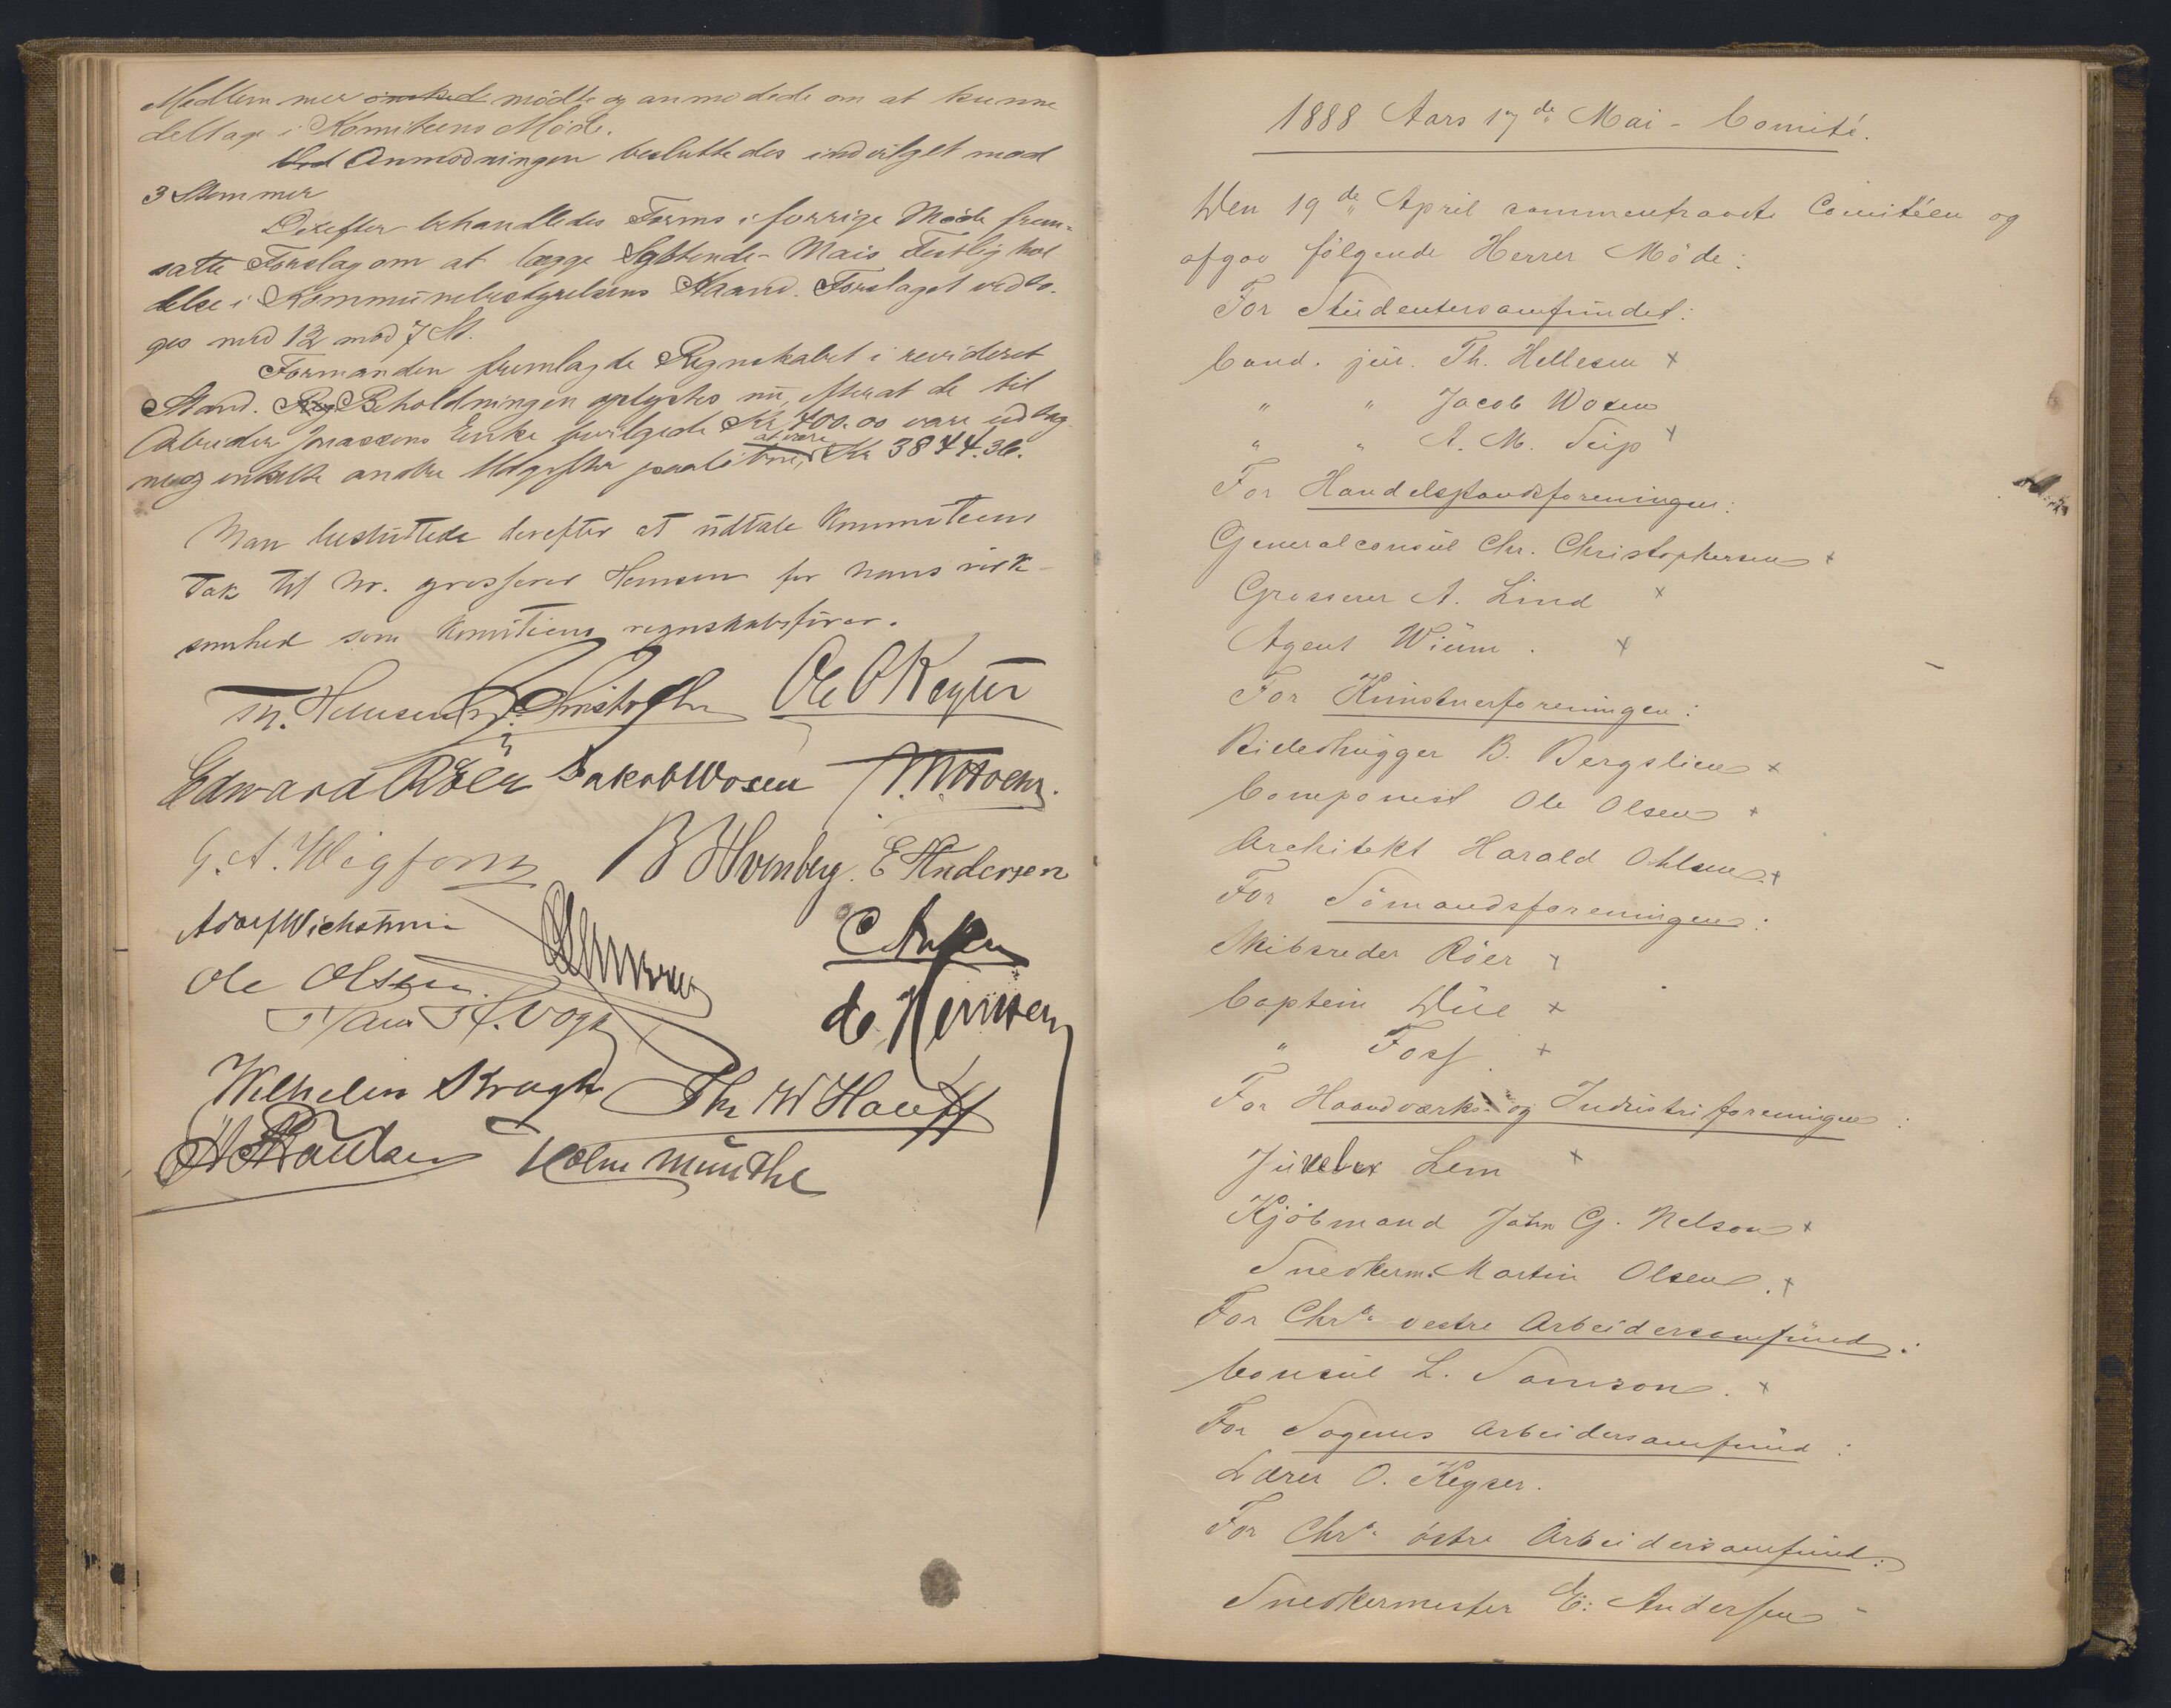 Medlem mer ønskede mödte og anmodede om at kunne
deltage i Komiteens Møde.
Ved Anmodningen besluttedes indvilget mod
3 Stemmer
Derefter behandledes Forms i forrige Møde frem-
satte Forslag om at lægge Syttende-Mais Festlighol
delse i Kommunebestyrelsens Haand. Forslaget vedto-
ges med 12 mod 7 St.
Formanden fremlagde Regnskabet i revideret
Stand. Beholdningen oplystes nu, efterat de til
Arbeider Jonassens Enke bevilgede Kr 400.00 vare udbeg
og enkelte andre Udgifter at være Kr 3844.36.
Man besluttede derefter at udtale Kommiteens
Tak til hr. grosserer Hennsen for hans virk-
somhed som Komiteens regnskabsfører.
Ole O Keyser
Edward Röer Jakob Wosen
B Hvenberg. E Andersen
Adolf Wichstrøm
Ole Olsen
Hans H. Vogt
Wilhelm Krogh Thr W Hauff
Holm Munthe
1888 Aars 17de Mai-Comité.
Den 19de April sammentraadte Comitéen og
afgav følgende Herrer Möde:
For Studentersamfundet:
Cand. jur. Th. Hellesen x
" " Jacob Wosen
" " A. M. Seip x
For Handelsstandsforeningen:
Generalconsul Chr. Christophersen x
Grosserer A. Lind x
Agent Wiüm. x
For Kunstnerforeningen:
Billedhugger B. Bergslien x
Componist Ole Olsen x
Architekt Harald Ohlsen. x
For Sömandsforeningen:
Skibsreder Röer x
Captein Düe x
" Foss. x
For Haandværks- og Industriforeningen:
Juveler Lem x
Kjöbmand John G. Nelson x
Snedkerm. Martin Olsen. x
For Chra. vestre Arbeidersamfund:
Consul L. Samson. x
For Sagenes Arbeidersamfund:
Lærer O. Keyser.
For Chra. östre Arbeidersamfund:
Snedkermester E: Andersen -